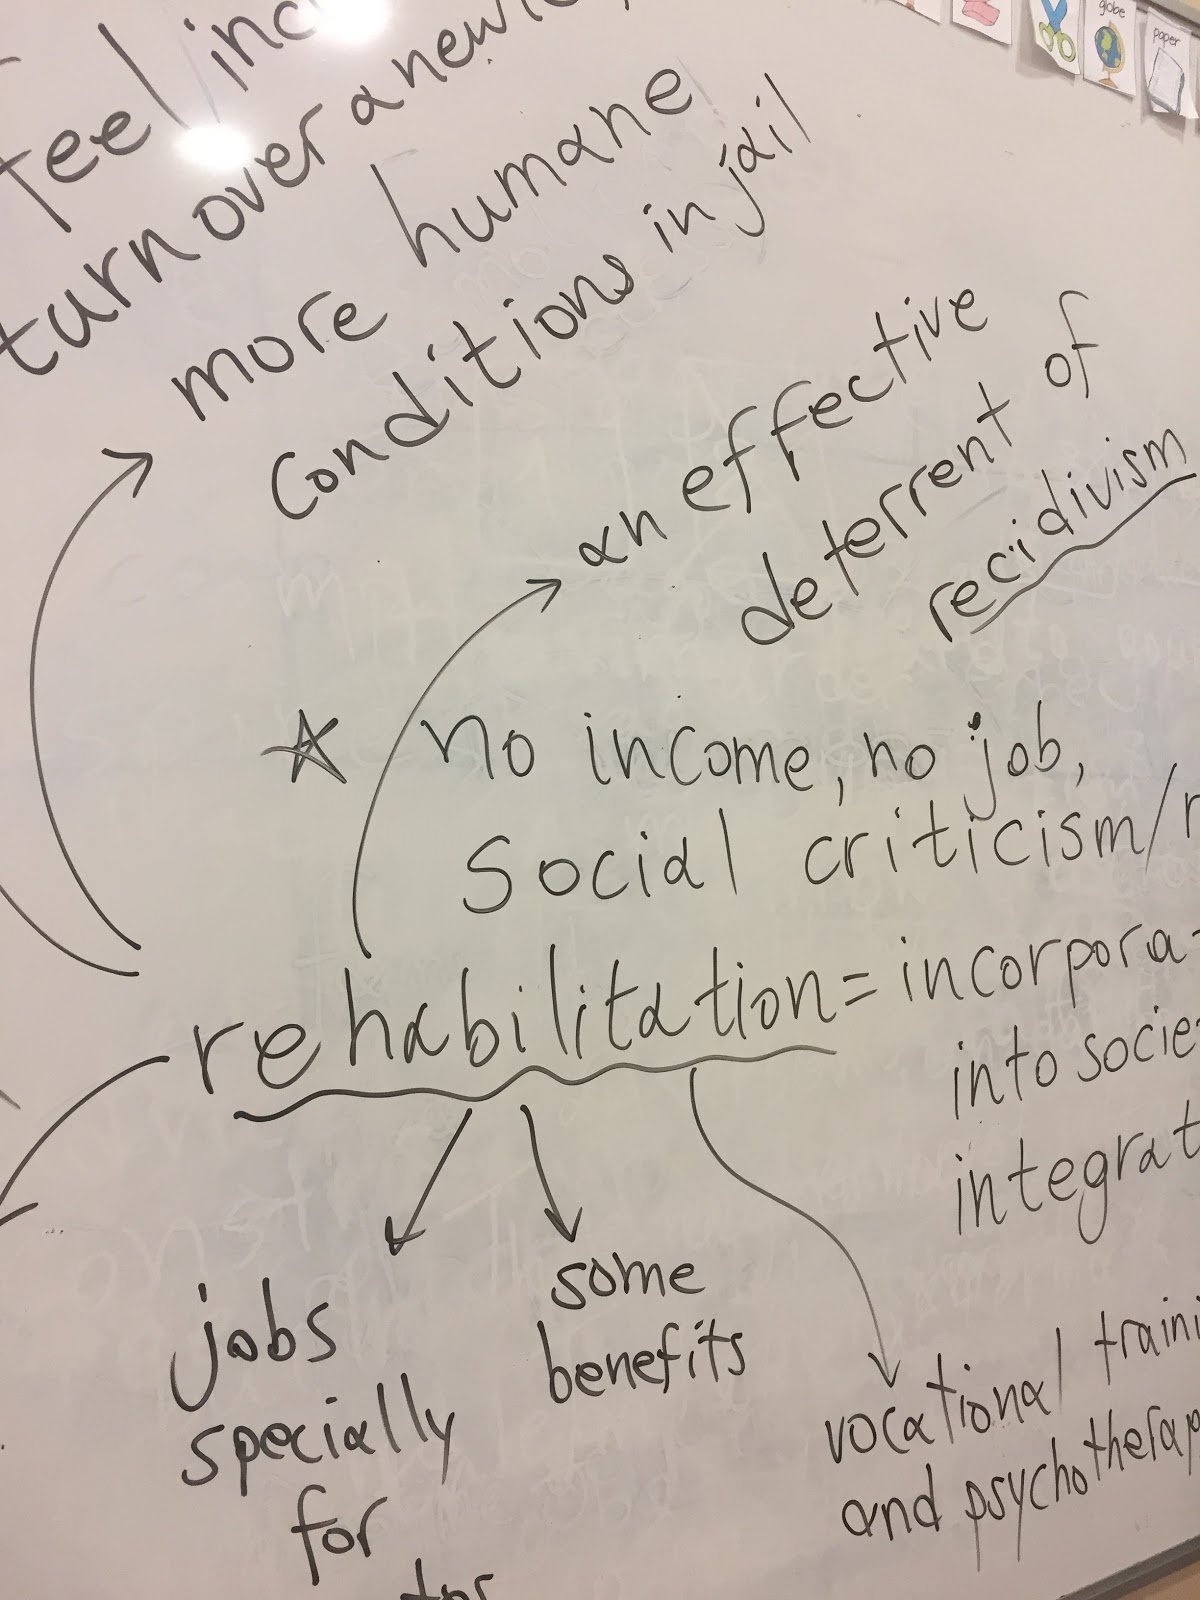 globe
paper
feel inc
turn over a new
more humane
conditions in jail
an effective
deterrent of
recidivism
no income, no job,
social criticism/
rehabilitation = incorpora-
into socie
integrat
jobs
specially
for
some
benefits
vocational traini
and psychotherap